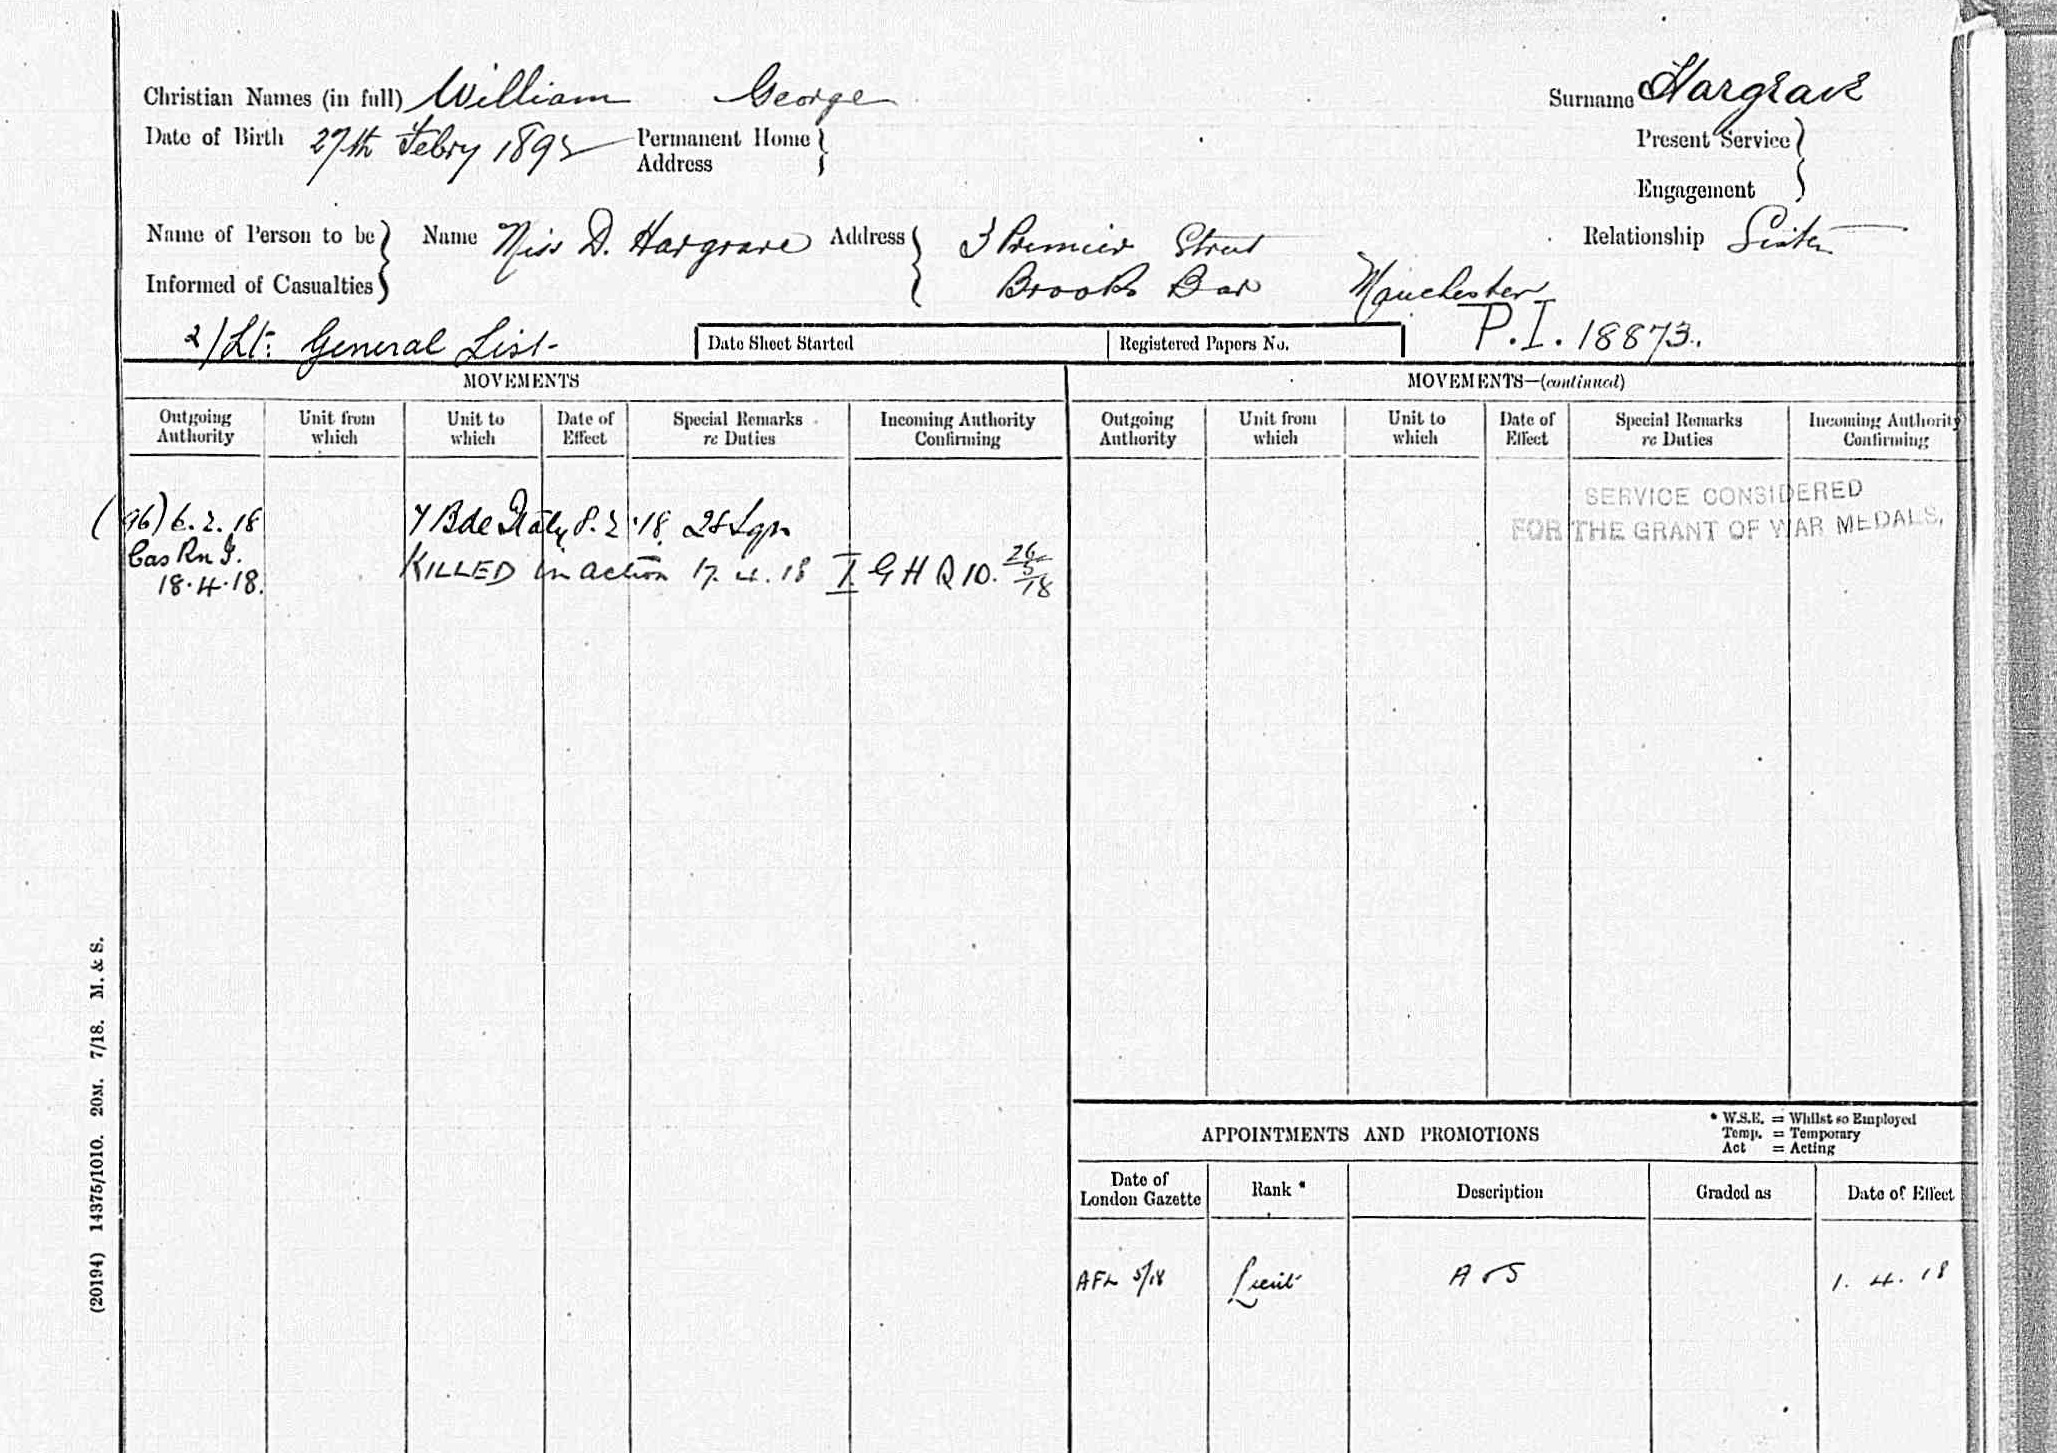 Christian Names (in full) William George Surname Hargrave
Date of Birth 27th Febry 1895 Permanent Home Address Present Service Engagement
Name of Person to be Informed of Casualties Name Miss D. Hargrave Address 3 Premier Street Relationship Sister
Brooks Bar Manchester
2/Lt: General List - Date Sheet Started Registered Papers No. P.I. 18873.
MOVEMENTS MOVEMENTS—(continued)
Outgoing Authority Unit from which Unit to which Date of Effect Special Remarks re Duties Incoming Authority Confirming Outgoing Authority Unit from which Unit to which Date of Effect Special Remarks re Duties Incoming Authority Confirming
SERVICE CONSIDERED
FOR THE GRANT OF WAR MEDALS.
(96) 6.2.18 7 Bde Italy 8.2.18 28 Sqn
Cas Rn I. KILLED in action 17.4.18 I. G H Q 10. 26/5/18
18.4.18.
APPOINTMENTS AND PROMOTIONS
* W.S.E. = Whilst so Employed
Temp. = Temporary
Act = Acting
Date of London Gazette Rank * Description Graded as Date of Effect
AFL 5/18 Lieut A & S 1. 4. 18
(20194) 14375/1010. 20M. 7/18. M. & S.